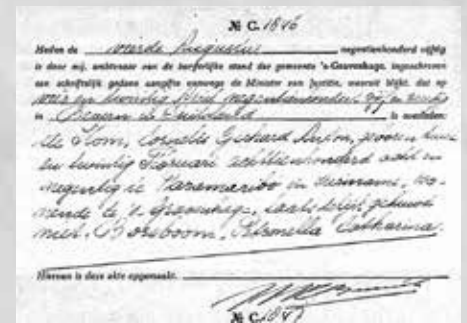 № C. 1846
Heden de vierde Augustus negentienhonderd vijftig
is door mij, ambtenaar van den burgerlijke stand der gemeente 's-Gravenhage, ingeschreven
een schriftelijk gedane aangifte vanwege de Minister van Justitie, waaruit blijkt, dat op
april negentienhonderd vijf en veertig
in Duitsland is overleden:
de Kom, Cornelis Gerhard Anton, geboren twee
en twintig Februari achttienhonderd acht en
negentig te Paramaribo in Suriname, wo-
nende te 's-Gravenhage, laatstelijk gehuwd
met: Borsboom, Petronella Catharina.
Hiervan is deze akte opgemaakt.
№ C. 1847